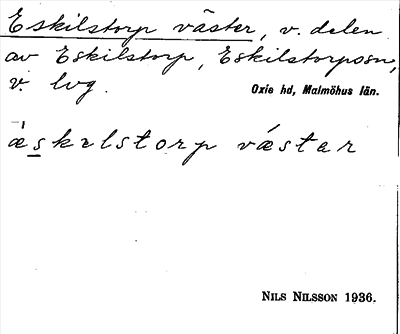 Eskilstorp väster, v. delen
av Eskilstorp, Eskilstorpssn,
v. lvg.
Oxie hd, Malmöhus län.
æ̀skɩlstorp vǽstar
NILS NILSSON 1936.